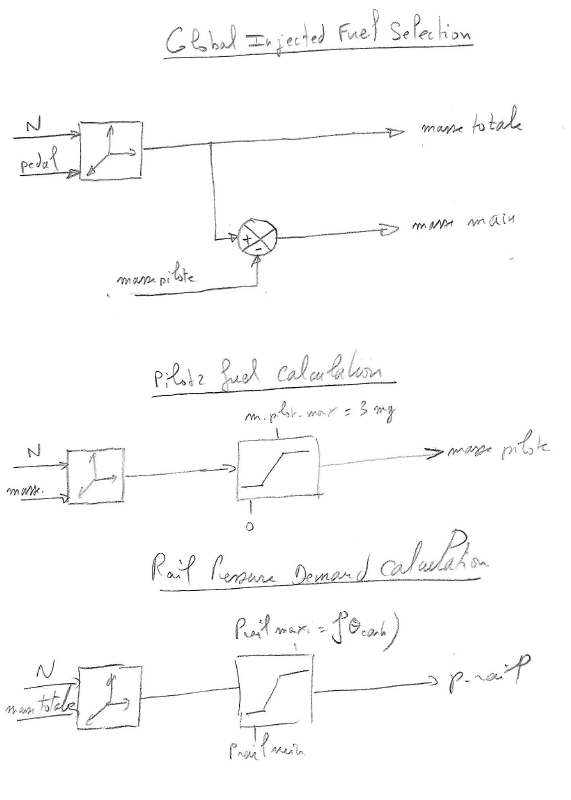 Global Injected Fuel Selection
N
pedal
masse totale
+
-
masse main
masse pilote
Pilote fuel calculation
m.pilot.max = 3 mg
N
masse.
masse pilote
0
Rail Pressure Demand Calculation
Prail maxi = f θcarb)
N
masse totale
p-rail
Prail min